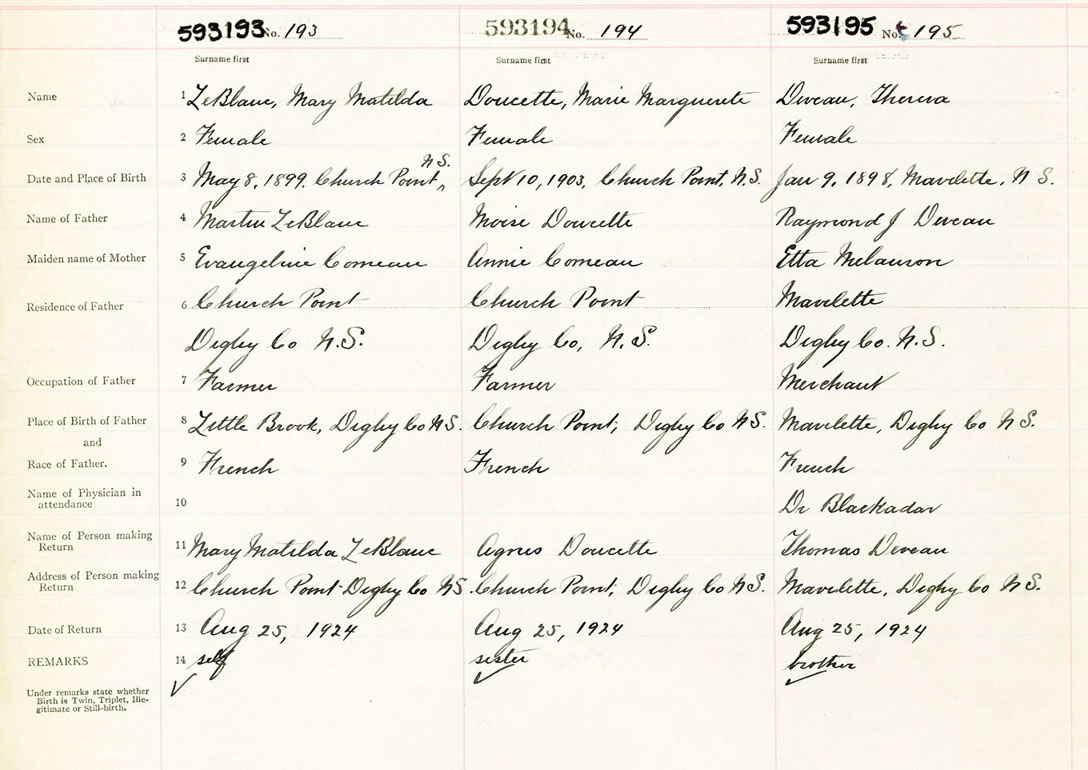 593193 No. 193 593194 No. 194 593195 No. 195
Surname first Surname first Surname first
Name 1 LeBlanc, Mary Matilda Doucette, Marie Marguerite Deveau, Theresa
Sex 2 Female Female Female
N S.
Date and Place of Birth 3 May 8, 1899. Church Point, Sept 10, 1903, Church Point, N.S. Jan 9, 1898, Mavilette, N S.
Name of Father 4 Martin LeBlanc Moise Doucette Raymond J Deveau
Maiden name of Mother 5 Evangeline Comeau Annie Comeau Etta Melanson
Residence of Father 6 Church Point Church Point Mavilette
Digby Co N.S. Digby Co, N.S. Digby Co. N.S.
Occupation of Father 7 Farmer Farmer Merchant
Place of Birth of Father 8 Little Brook, Digby Co N S. Church Point, Digby Co N S. Mavilette, Digby Co N S.
and
Race of Father. 9 French French French
Name of Physician in
attendance 10 Dr Blackadar
Name of Person making
Return 11 Mary Matilda LeBlanc Agnes Doucette Thomas Deveau
Address of Person making
Return 12 Church Point Digby Co N S. Church Point, Digby Co N S. Mavilette, Digby Co N S.
Date of Return 13 Aug 25, 1924 Aug 25, 1924 Aug 25, 1924
REMARKS 14 self sister brother
Under remarks state whether
Birth is Twin, Triplet, Ille-
gitimate or Still-birth.